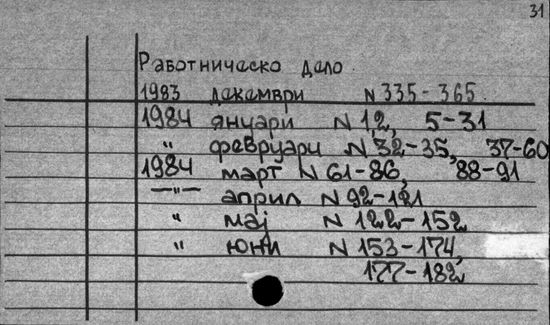 31
Работническо дало.
1983 дакамври N 335-365.
1984 януари N 1,2, 5-31
" февруари N 32-35, 37-60
1984 март N 61-86, 88-91
—"— април N 92-121
" мај N 122-152
" юни N 153-174,
177-182